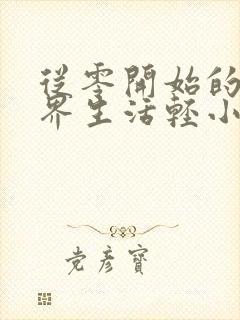 從零開始的
界生活輕小
党彦寶